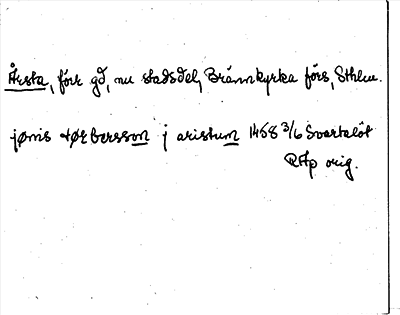 Årsta, förr gd, nu stadsdel, Brännkyrka förs, Sthlm.
jønis thørbersson j aristum 1458 3/6 Svartslöt
RAp orig.